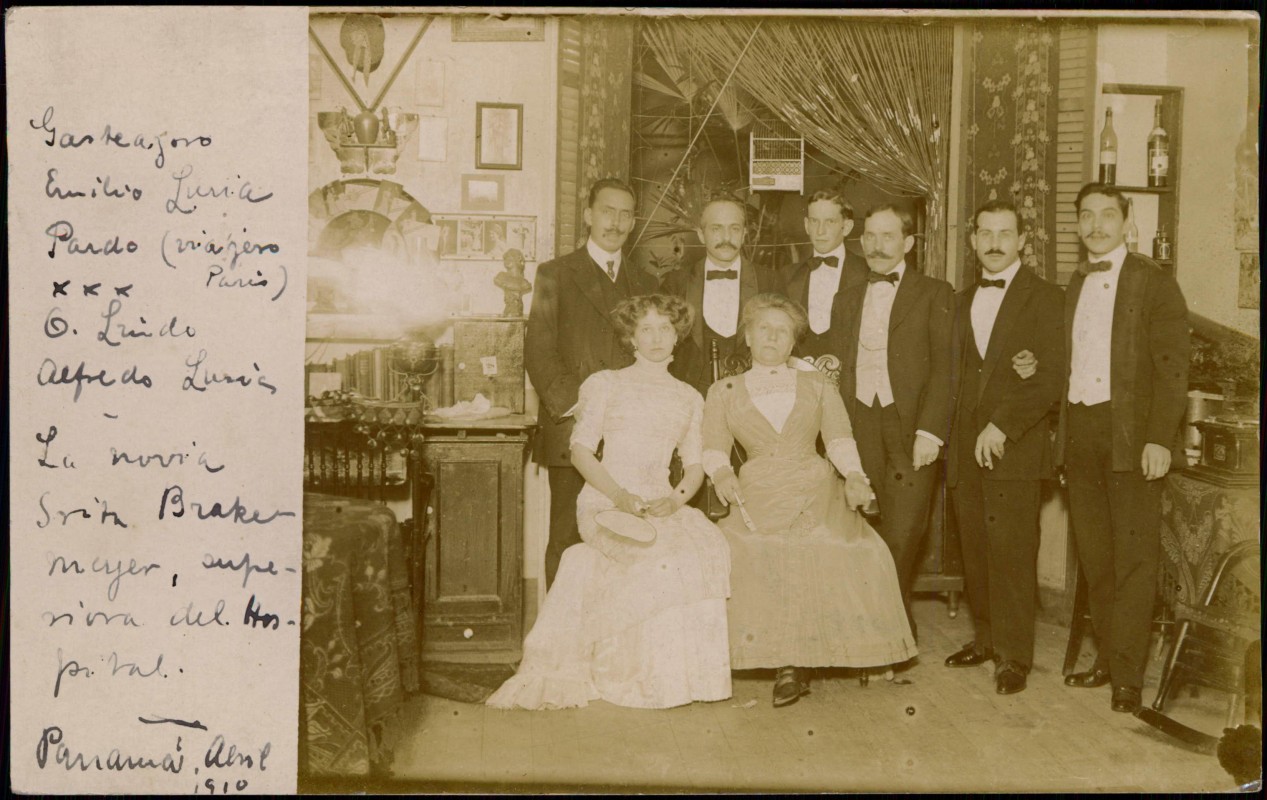 Gasteazoro
Emilio Luria
Pardo (viajero
Paris)
x x x
O. Lindo
Alfredo Luria
-
La novia
Srita Brake-
meyer, supe-
riora del Hos-
pital.
Panamá, Abril
1910